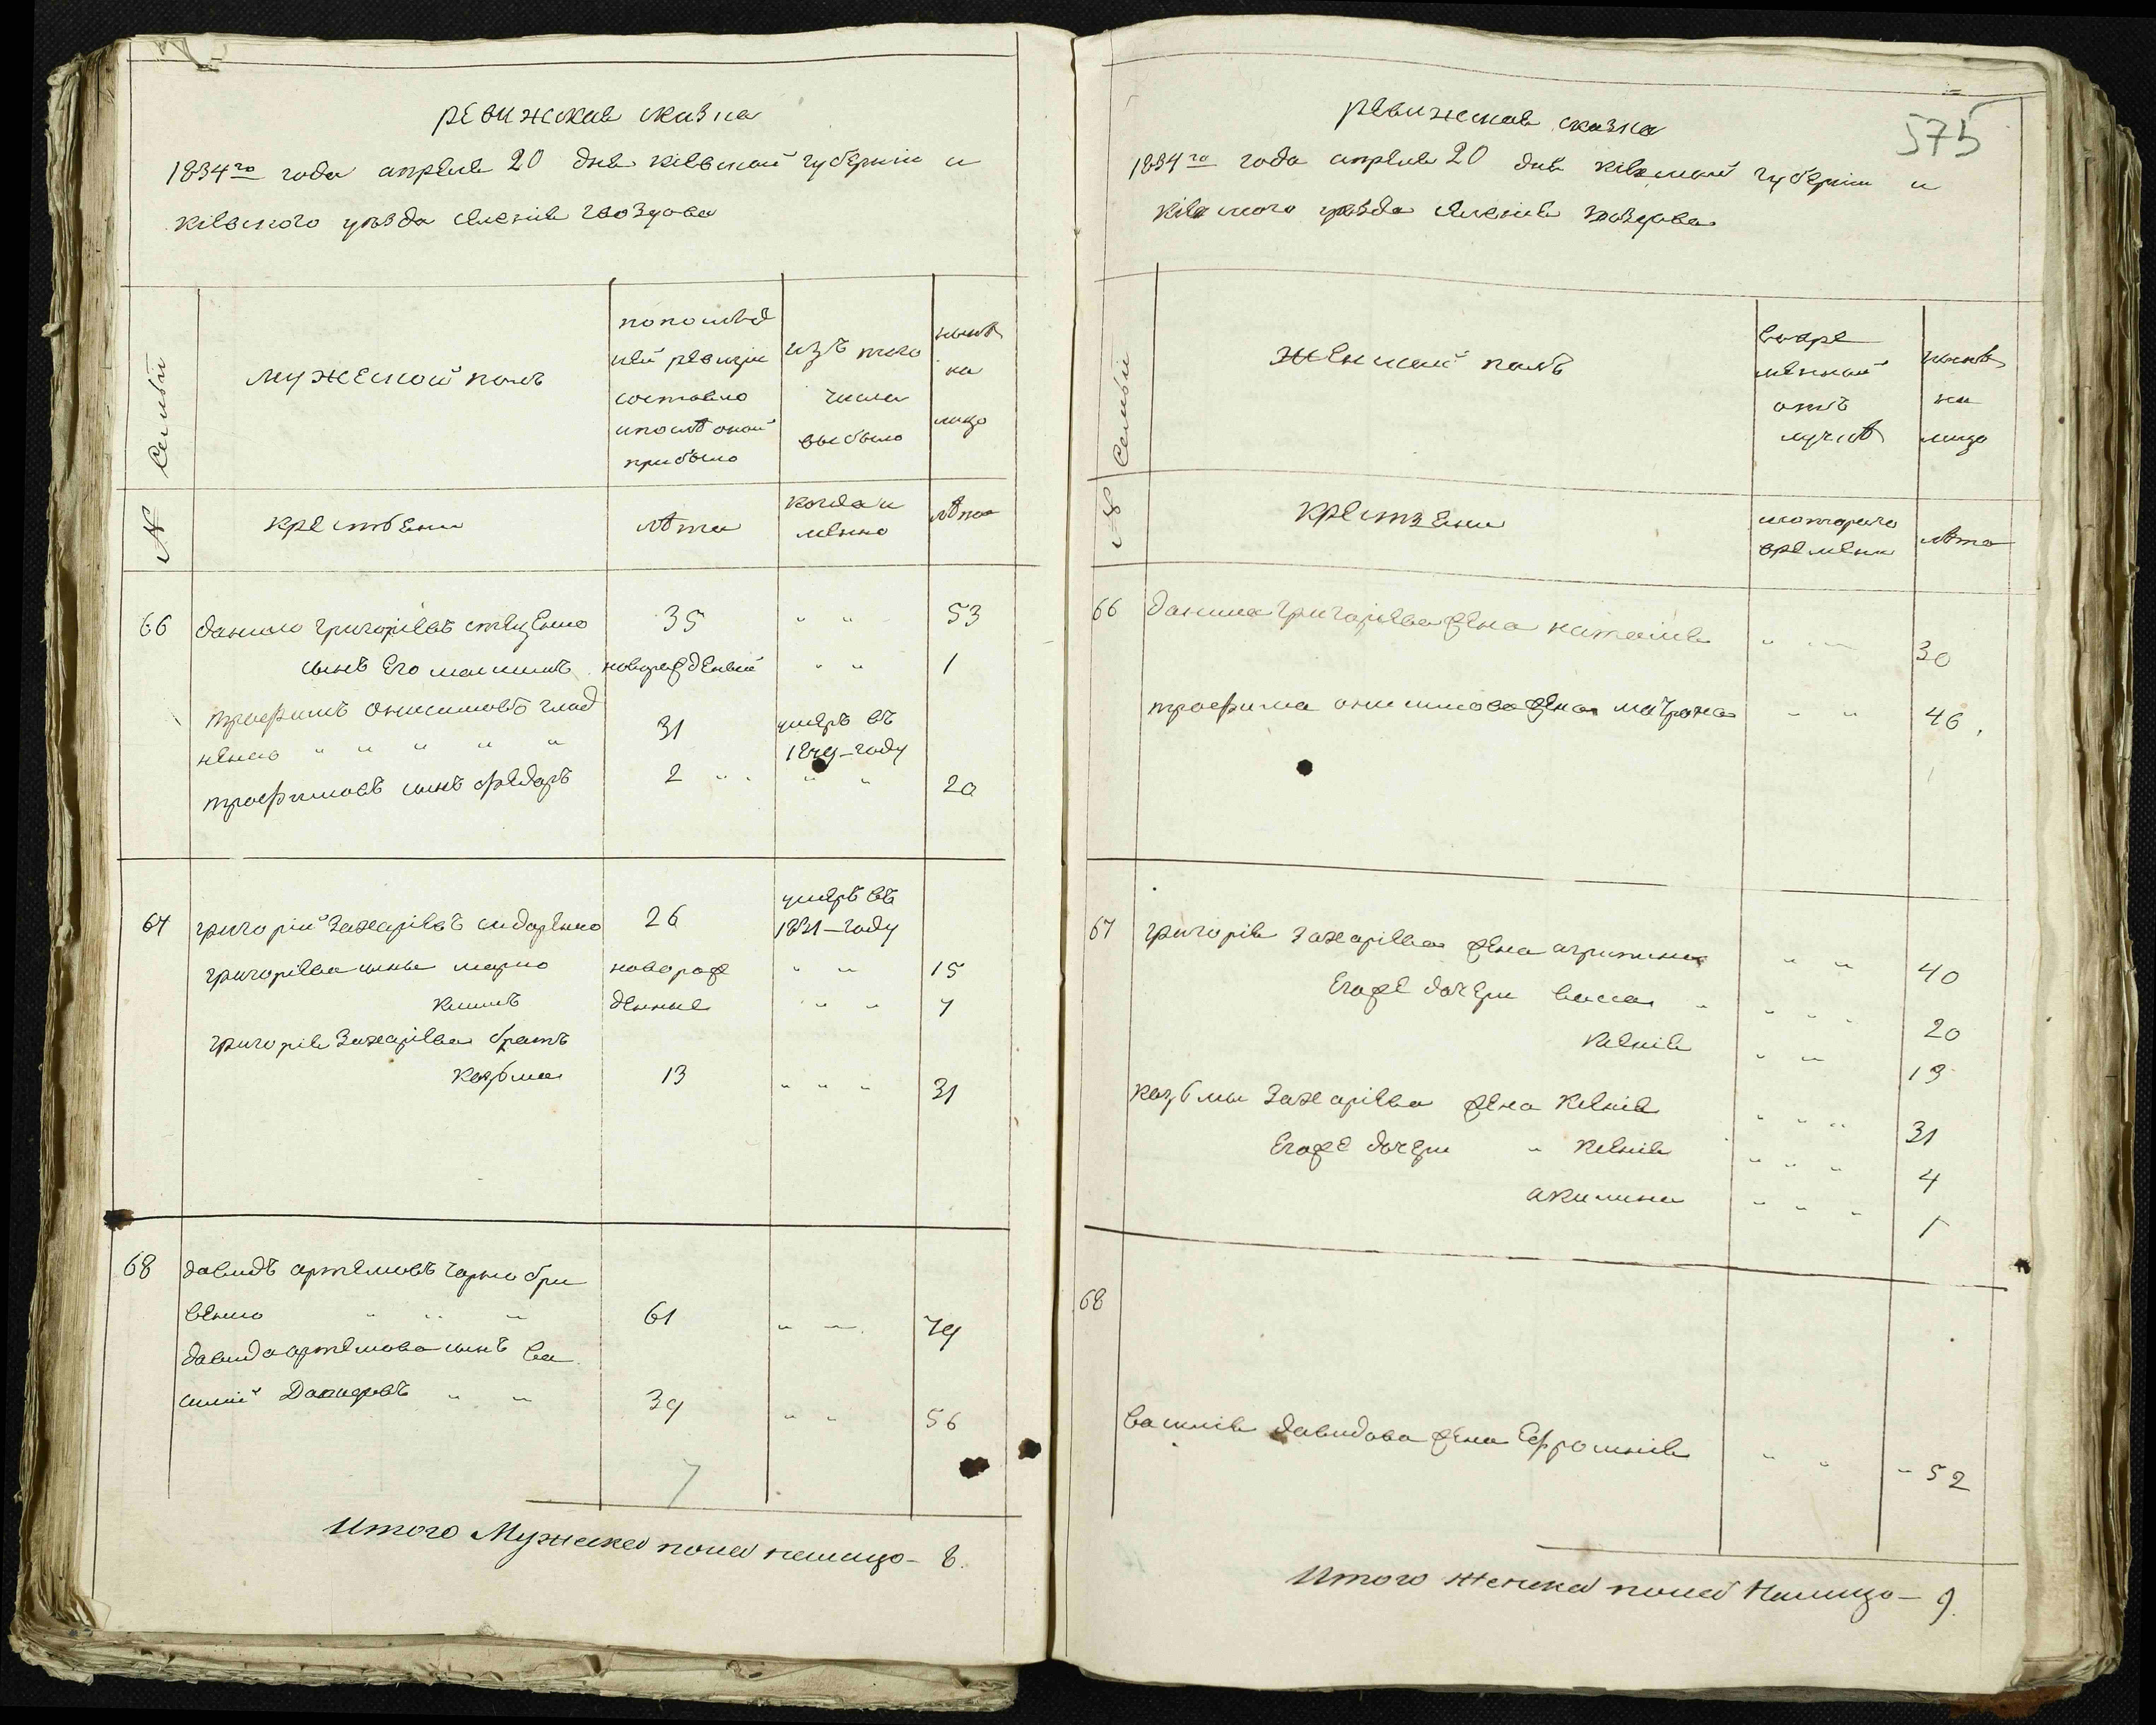 ревижская сказка
1834го года апреля 20 дня кіевской губерніи и
кіевского уѣзда селенія гвоздова
Семьи
мужеской полъ
по послѣд
ней ревизіи
состояло
и послѣ оной
прибыло
изъ того
числа
выбыло
нынѣ
на
лицо
№
крестьяни
лѣта
когда и
менно
лѣта
66 данило григоріевъ стеценко 35 " " 53
сынъ Его максимъ новорожденый " " 1
трофимъ онисимовъ глад
ненко " " " " " 31 умеръ въ
1829-году
трофимовъ сынъ федоръ 2 " " " " 20
67 григорій захаріевъ сидоренко 26 умеръ въ
1821-году
григоріева сыны марко новорож " " 15
климъ денные " " 7
григорія захаріева братъ
козьма 13 " " " 31
68 давидъ артемовъ чорнобри
венко " " " 61 " " 79
давида артемова сынъ ва
силій Давидовъ " " 39 " " 56
7
Итого Мужеска пола налицо- 8.
575
ревижская сказка
1834го года апреля 20 дня кіевской губерніи и
кіевского уѣзда селенія гвоздова
Семьи
женской полъ
во вре
менной
отъ
лучкѣ
нынѣ
на
лицо
№
крестьяни
с которого
времени
лѣта
66 данила григоріева жена наталія " " 30
трофима онисимова жена матрона " " 46
67 григорія захаріева жена агрипина " " 40
Егоже дочери васса " " " " 20
ксенія " " 13
козьмы захаріева жена ксенія " " " 31
Егоже дочери " ксенія " " " 4
акилина " " " 1
68
василія давидова жена Ефросинія " " " 52
Итого женска пола Налицо- 9.